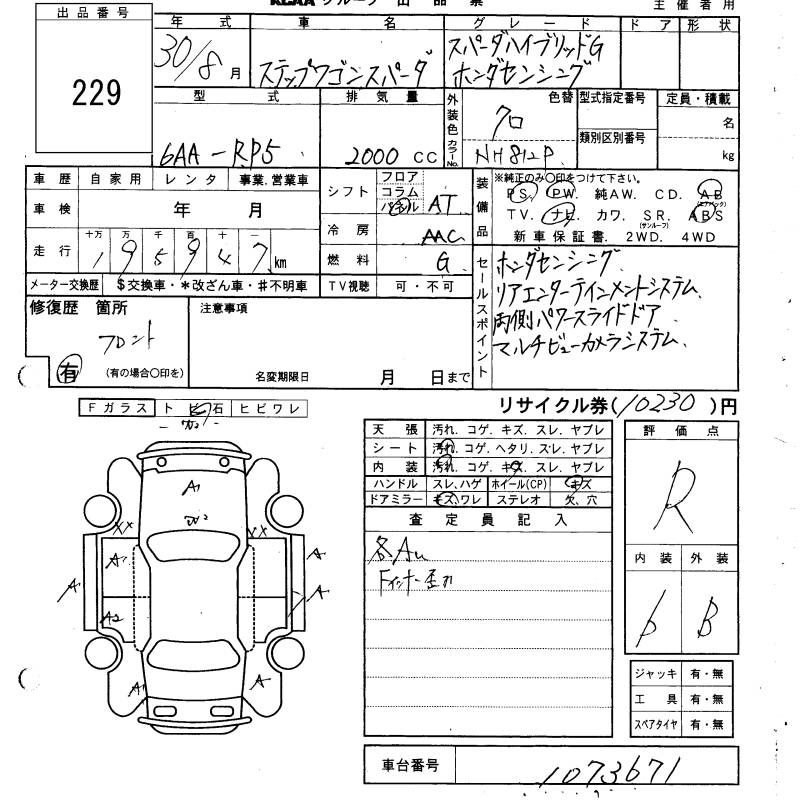 KCAA グループ 出 品 票
主 催 者 用
出 品 番 号
229
年 式
30/8 月
車 名
ステップワゴンスパーダ
グ レ ー ド
スパーダハイブリッドG
ホンダセンシング
ド ア 形 状
型 式
6AA-RP5
排 気 量
2000 CC
外装色
カラーNo.
色替
クロ
NH812P
型式指定番号
類別区別番号
定員・積載
名
kg
車 歴 自 家 用 レ ン タ 事業.営業車
車 検 年 月
走 行 十万 万 千 百 十 一
195947 km
シフト フロア コラム パネル AT
冷 房 AAC
燃 料 G
装備品
※純正のみ〇印をつけて下さい。
PS. PW. 純AW. CD. AB
(エアバック)
TV. ナビ. カワ. SR. ABS
(サンルーフ)
新車保証書. 2WD. 4WD
メーター交換歴 $交換車・*改ざん車・#不明車
TV視聴 可・不可
セールスポイント
ホンダセンシング、
リアエンターテインメントシステム、
両側パワースライドドア
マルチビューカメラシステム、
修復歴 箇所
フロント
有
(有の場合〇印を)
注意事項
名変期限日 月 日まで
Fガラス ト ビ 石 ヒビワレ
リサイクル券(10230)円
天 張 汚れ. コゲ. キズ. スレ. ヤブレ
シート 汚れ. コゲ. ヘタリ. スレ. ヤブレ
内 装 汚れ. コゲ. キズ. スレ. ヤブレ
ハンドル スレ、ハゲ ホイール(CP) キズ
ドアミラー キズ、ワレ ステレオ 欠、穴
査 定 員 記 入
各AU
Fインナー歪ミ
評 価 点
R
内 装 外 装
b B
A1
XX XX
A1 A
A A
A2
A1 A
ジャッキ 有・無
工 具 有・無
スペアタイヤ 有・無
車台番号 1073671